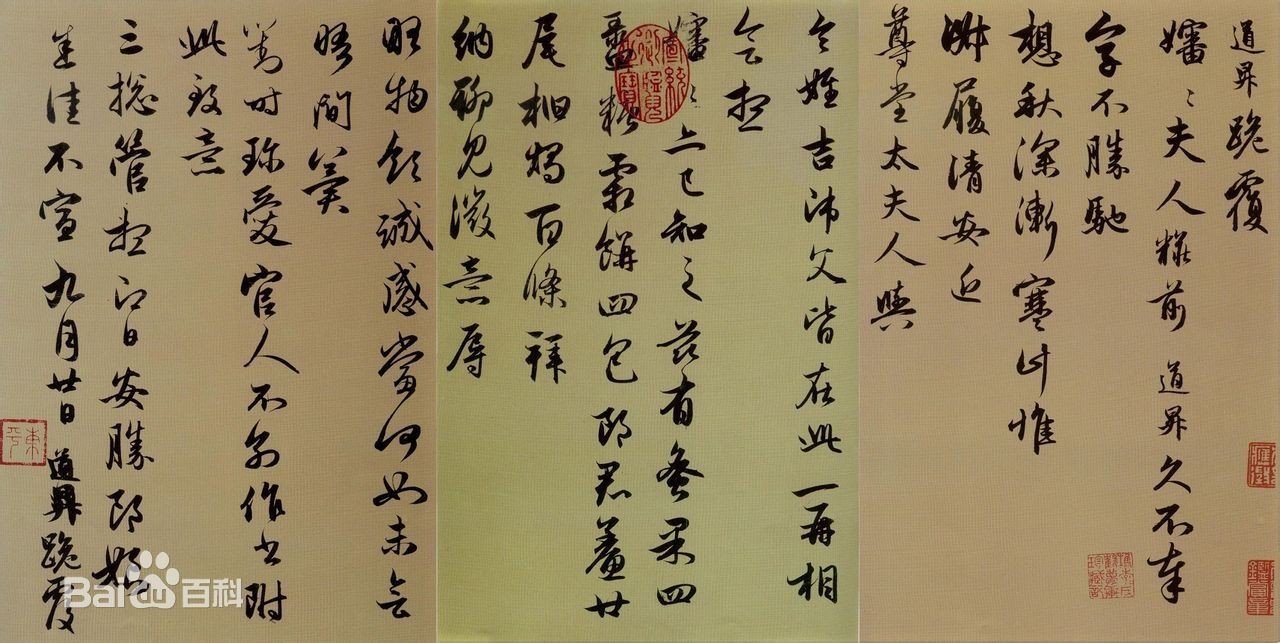 道昇跪覆
嬸嬸夫人粧前道昇久不奉
字不勝馳
想秋深漸寒計惟
淑履清安近
尊堂太夫人與
令姪吉師父皆在此一再相
會想
嬸嬸亦已知之茲有蜜果四
盝糖霜餅四包郎君鯗廿
尾柏燭百條拜
納聊見微意辱
物領誠感當何如未會
晤間冀
對時珍愛官人不別作書附
此致意
三總管想即日安勝郎娘
悉佳不宣九月廿日道昇跪覆
東平
Baidu百科